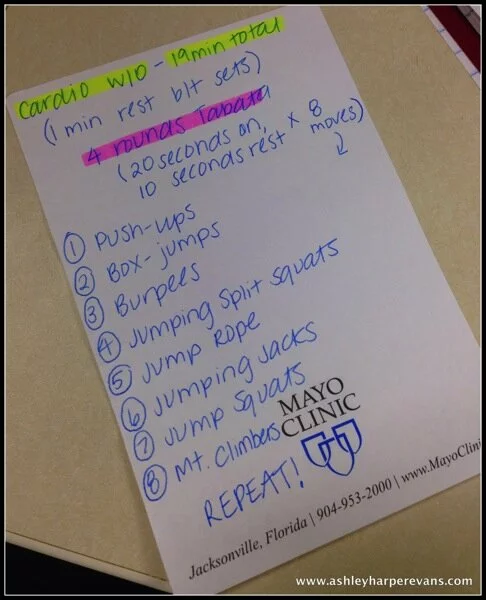 Cardio W/O - 19min total
(1 min rest b/t sets)
4 rounds Tabata
(20 seconds on,
10 seconds rest × 8
moves)
① Push-ups
② Box-jumps
③ Burpees
④ Jumping Split Squats
⑤ Jump Rope
⑥ Jumping Jacks
⑦ Jump Squats
⑧ Mt. Climbers
REPEAT!
MAYO
CLINIC
Jacksonville, Florida | 904-953-2000 | www.MayoClini
www.ashleyharperevans.com